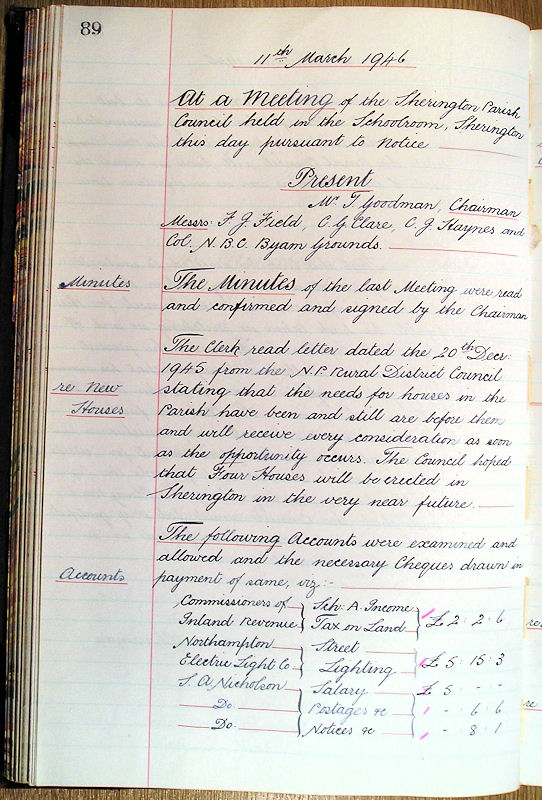 89
11th March 1946
At a Meeting of the Sherington Parish
Council held in the Schoolroom, Sherington
this day pursuant to Notice
Present
Mr T Goodman, Chairman
Messrs: F. J. Field, C. G. Clare, C. J. Haynes and
Col. N. B. C. Byam Grounds.
Minutes
The Minutes of the last Meeting were read
and confirmed and signed by the Chairman
re New
Houses
The Clerk read letter dated the 20th Decr:
1945 from the N.P. Rural District Council
stating that the needs for houses in the
Parish have been and still are before them
and will receive every consideration as soon
as the opportunity occurs. The Council hoped
that Four Houses will be erected in
Sherington in the very near future.
Accounts
The following Accounts were examined and
allowed and the necessary Cheques drawn in
payment of same, viz:-
Commissioners of } Sch: A. Income
Inland Revenue } Tax on Land } £ 2 : 2 : 6
Northampton } Street
Electric Light Co } Lighting } £ 5 : 15 : 3
S. A. Nicholson } Salary } £ 5 - -
Do. } Postages &c } - 6 : 6
Do. } Notices &c } - 8 : 1
re
re